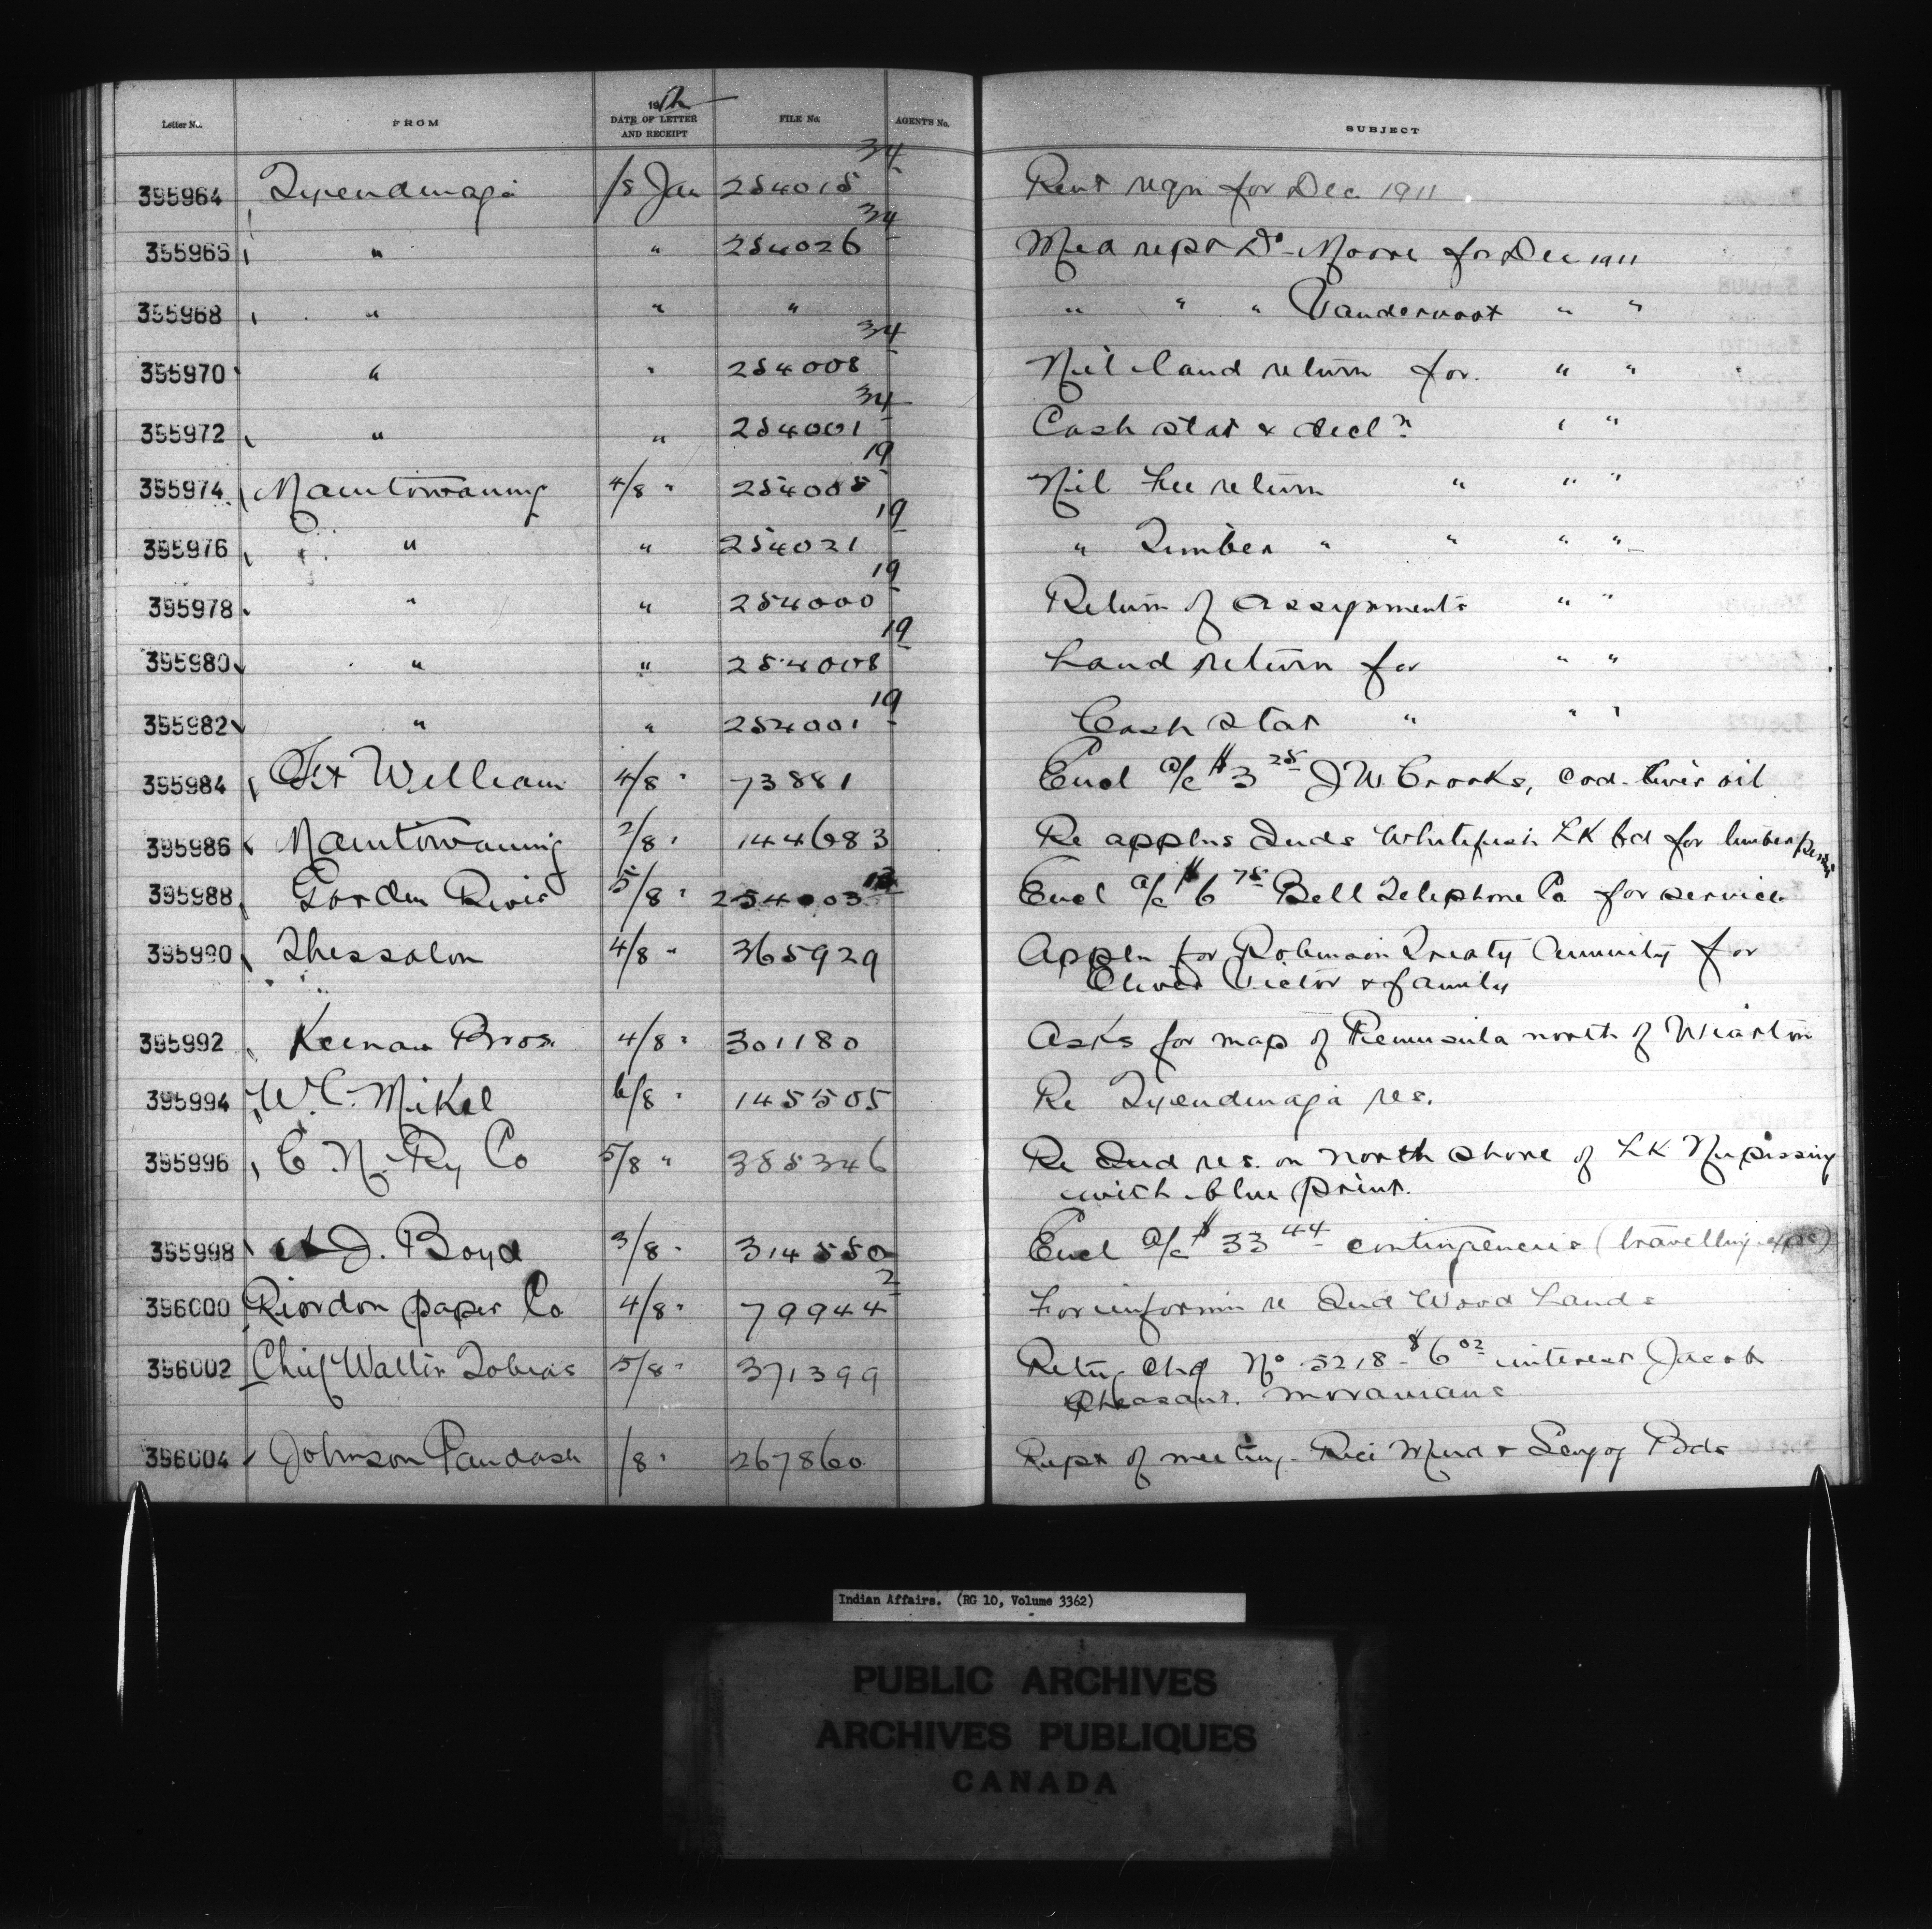 Letter No. FROM 1912 DATE OF LETTER AND RECEIPT FILE No. AGENT'S No. SUBJECT
395964 Tyendinaga /8 Jan 254015 34 Rent reqn for Dec 1911
395966 " " 254026 34 Med rept Dr Moore for Dec 1911
395968 " " " " " " Vandervoort " "
395970 " " 254008 34 Nil land return for " "
395972 " " 254001 34 Cash stat & decln " "
395974 Manitowaning 4/8 " 254005 19 Nil Fee return " " "
395976 " " 254021 19 " Timber " " " "
395978 " " 254000 19 Return of assignments " "
395980 " " 254008 19 Land return for " "
395982 " " 254001 19 Cash stat " " "
395984 Ft William 4/8 " 73881 Encl a/c $3 25 J W. Crooks, cod-liver oil
395986 Manitowaning 2/8 " 144683 Re applns Inds Whitefish Lk bd for timber
395988 Gorden River 5/8 " 254003 12 Encl a/c $6 75 Bell Telephone Co for service
395990 Thessalon 4/8 " 365929 Appln for Robinson Treaty Annuity for
Oliver Victor & family
395992 Keenan Bros. 4/8 " 301180 Asks for map of Peninsula north of Wiarton
395994 W. C. Mikel 6/8 " 145505 Re Tyendinaga res.
395996 C. N. Ry Co 5/8 " 385346 Re Ind res. on north shore of Lk Nipissing
with blue print.
395998 A J. Boyd 3/8 " 314550 Encl a/c $33 44 contingencies (travelling exps)
396000 Riordon paper Co 4/8 " 79944 2 For informn re Ind Wood Lands
396002 Chief Walter Tobias 5/8 " 371399 Retng chq No 5218 - $6 02 interest Jacob
Pheasant. Moravians
396004 Johnson Paudash /8 " 267860 Rept of meeting - Rice Mud & Scugog Bds
Indian Affairs. (RG 10, Volume 3362)
PUBLIC ARCHIVES
ARCHIVES PUBLIQUES
CANADA